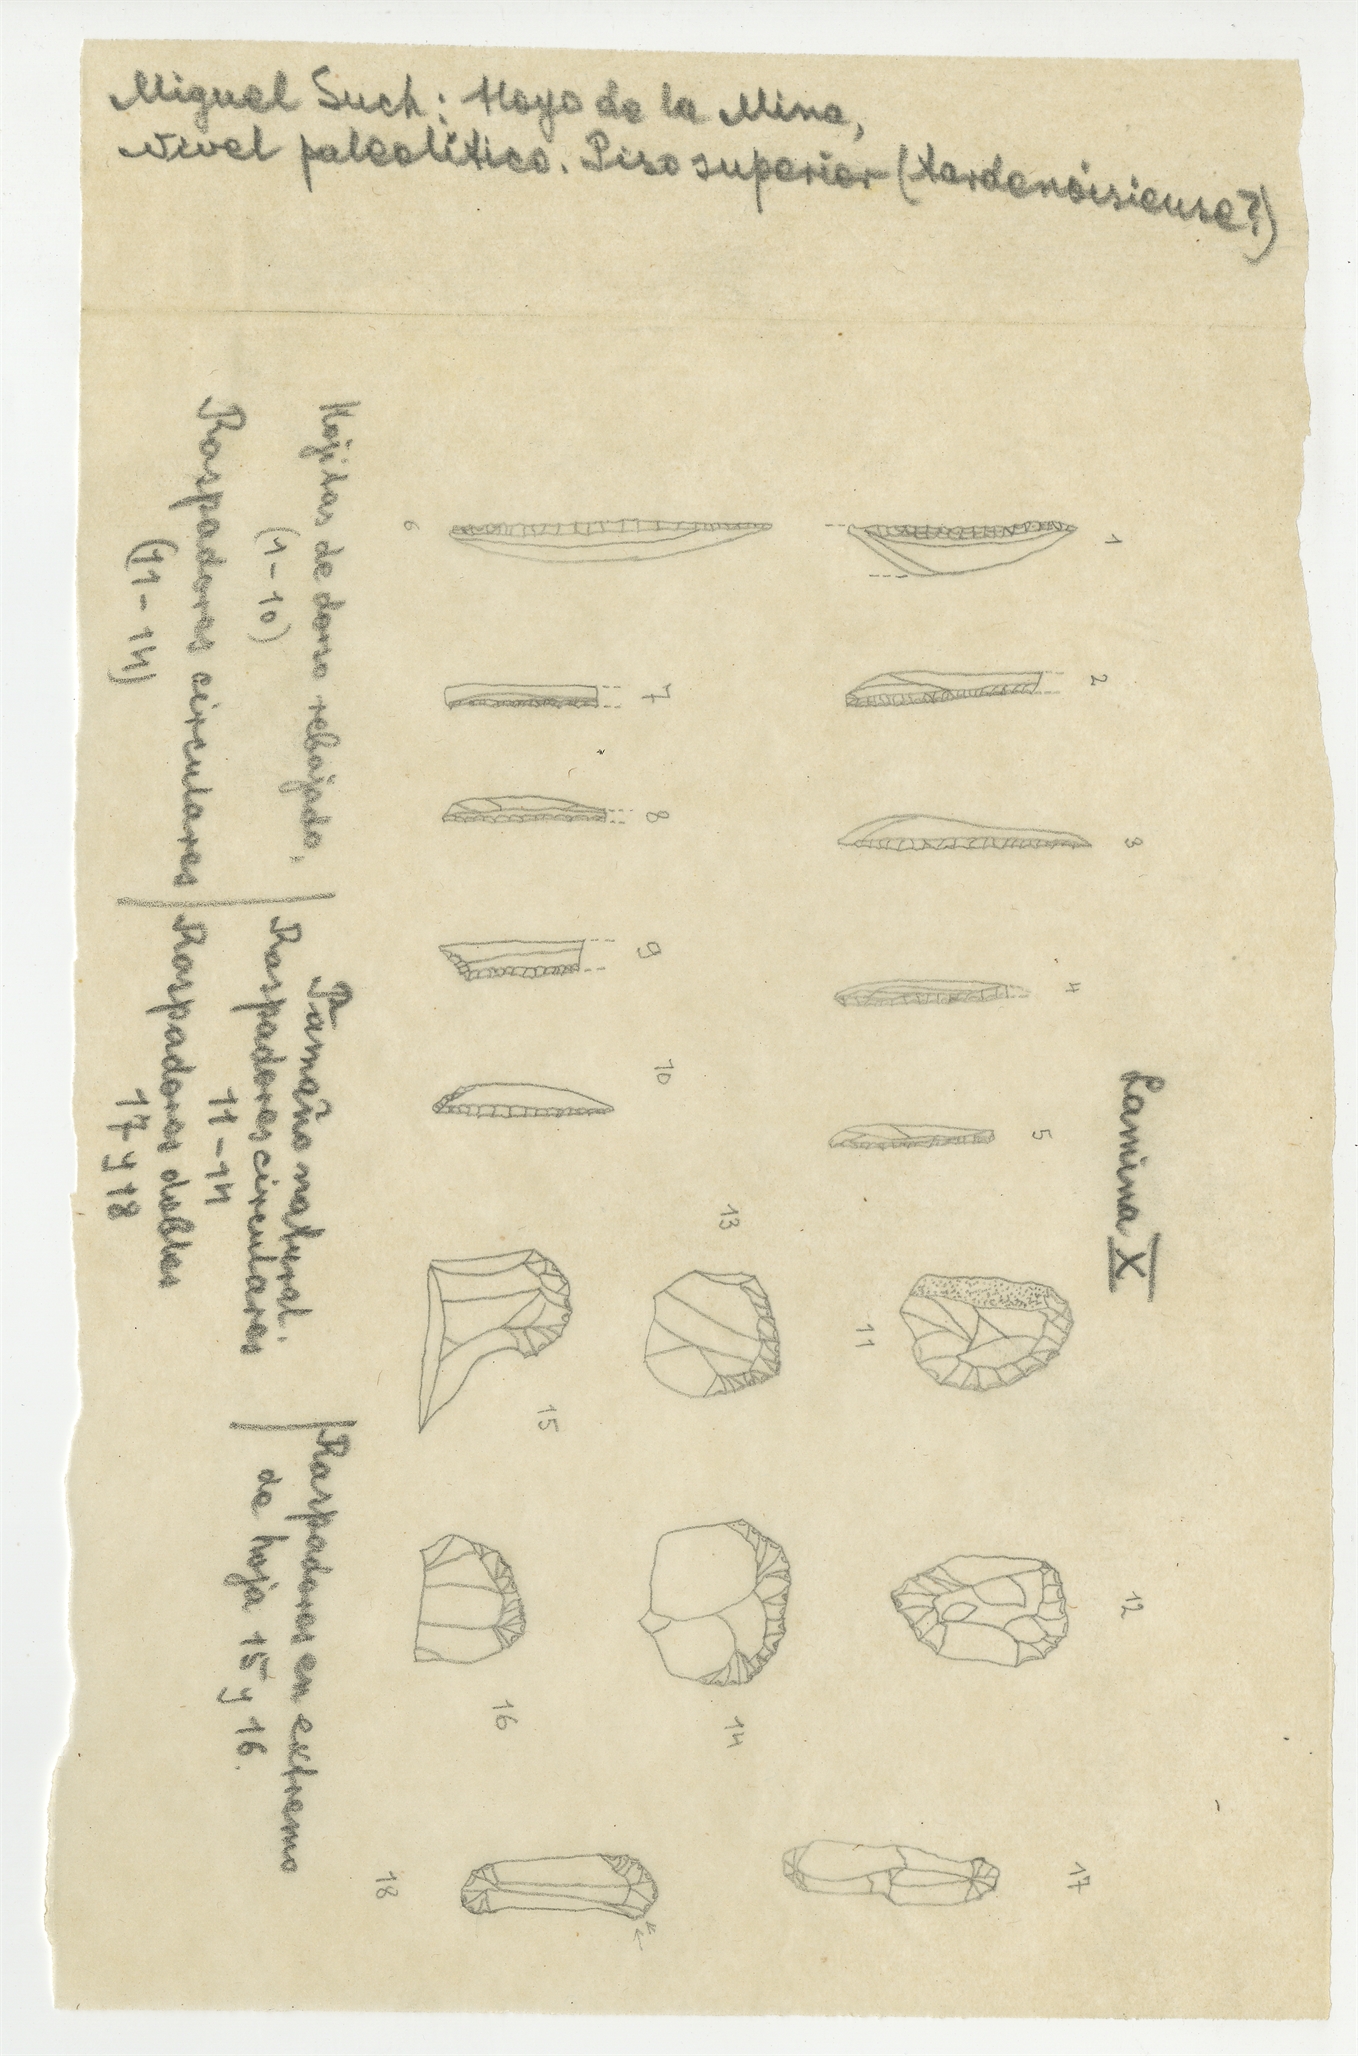 Miguel Such: Hoyo de la Mina,
Nivel paleolítico. Piso superior (tardenoisiense?)
Lamina X
1
2
3
4
5
6
7
8
9
10
11
12
13
14
15
16
17
18
Hojitas de dorso rebajado,
(1-10)
Raspadores circulares
(11-14)
Tamaño natural.
Raspadores circulares
11-14
Raspadores dobles
17 y 18
Raspadores en extremo
de hoja 15 y 16.